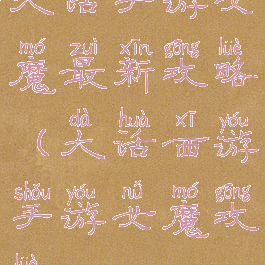 大话手游女
mó zuì xīn gōng lüè
魔最新攻略
dà huà xī yóu
（大话西游
shǒu yóu nǚ mó gōng
手游女魔攻
lüè